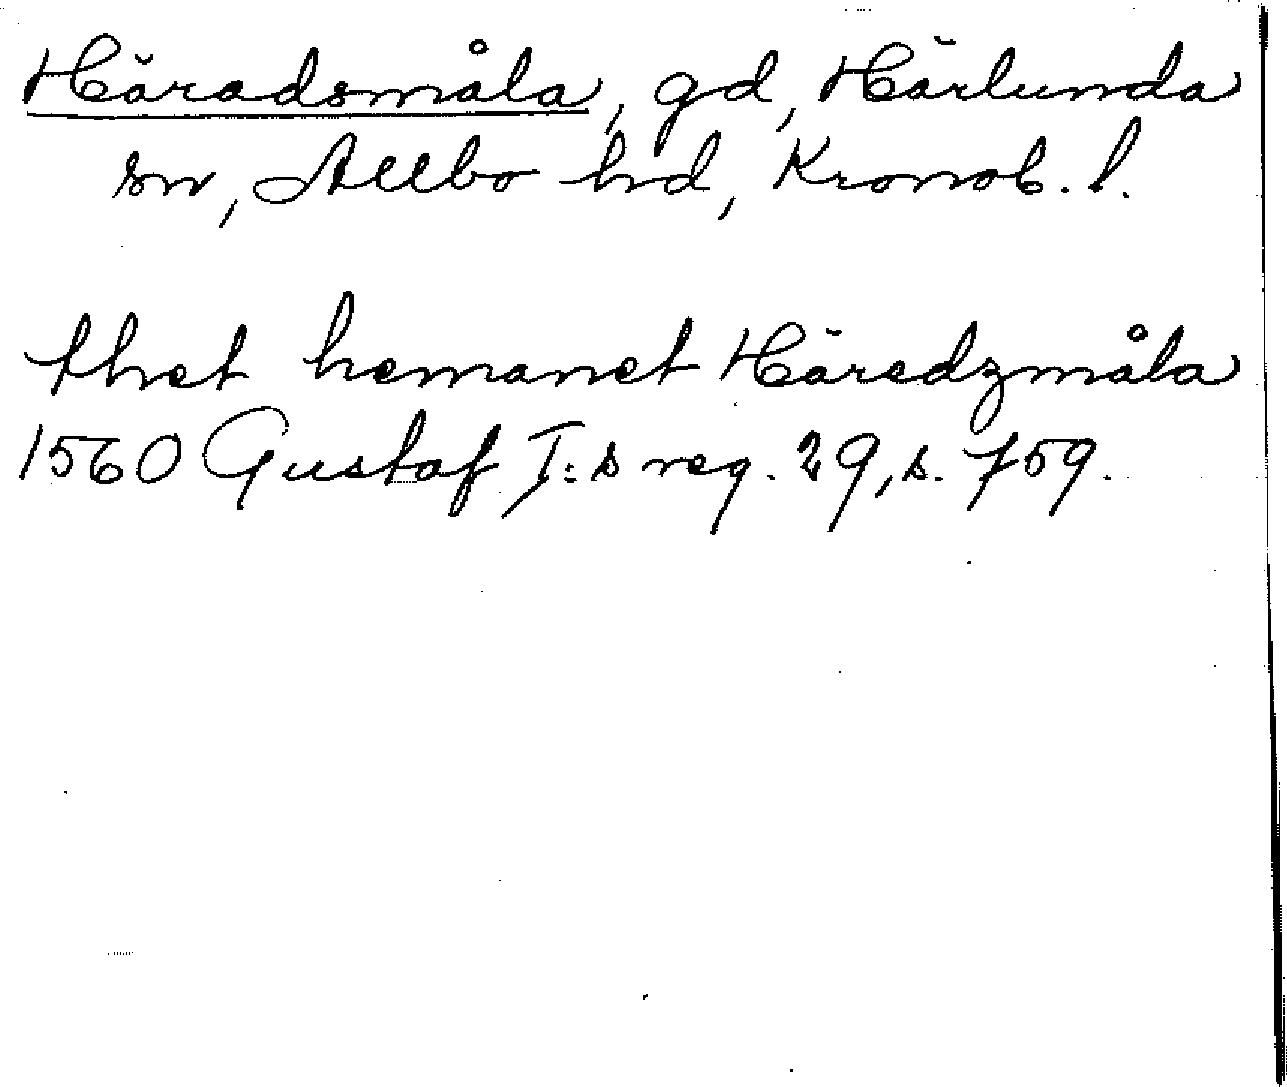 Häradsmåla, gd, Härlunda
sn, Allbo hd, Kronob. l.
thet hemanet Häredzmåla
1560 Gustaf I:s reg. 29, s. 759.